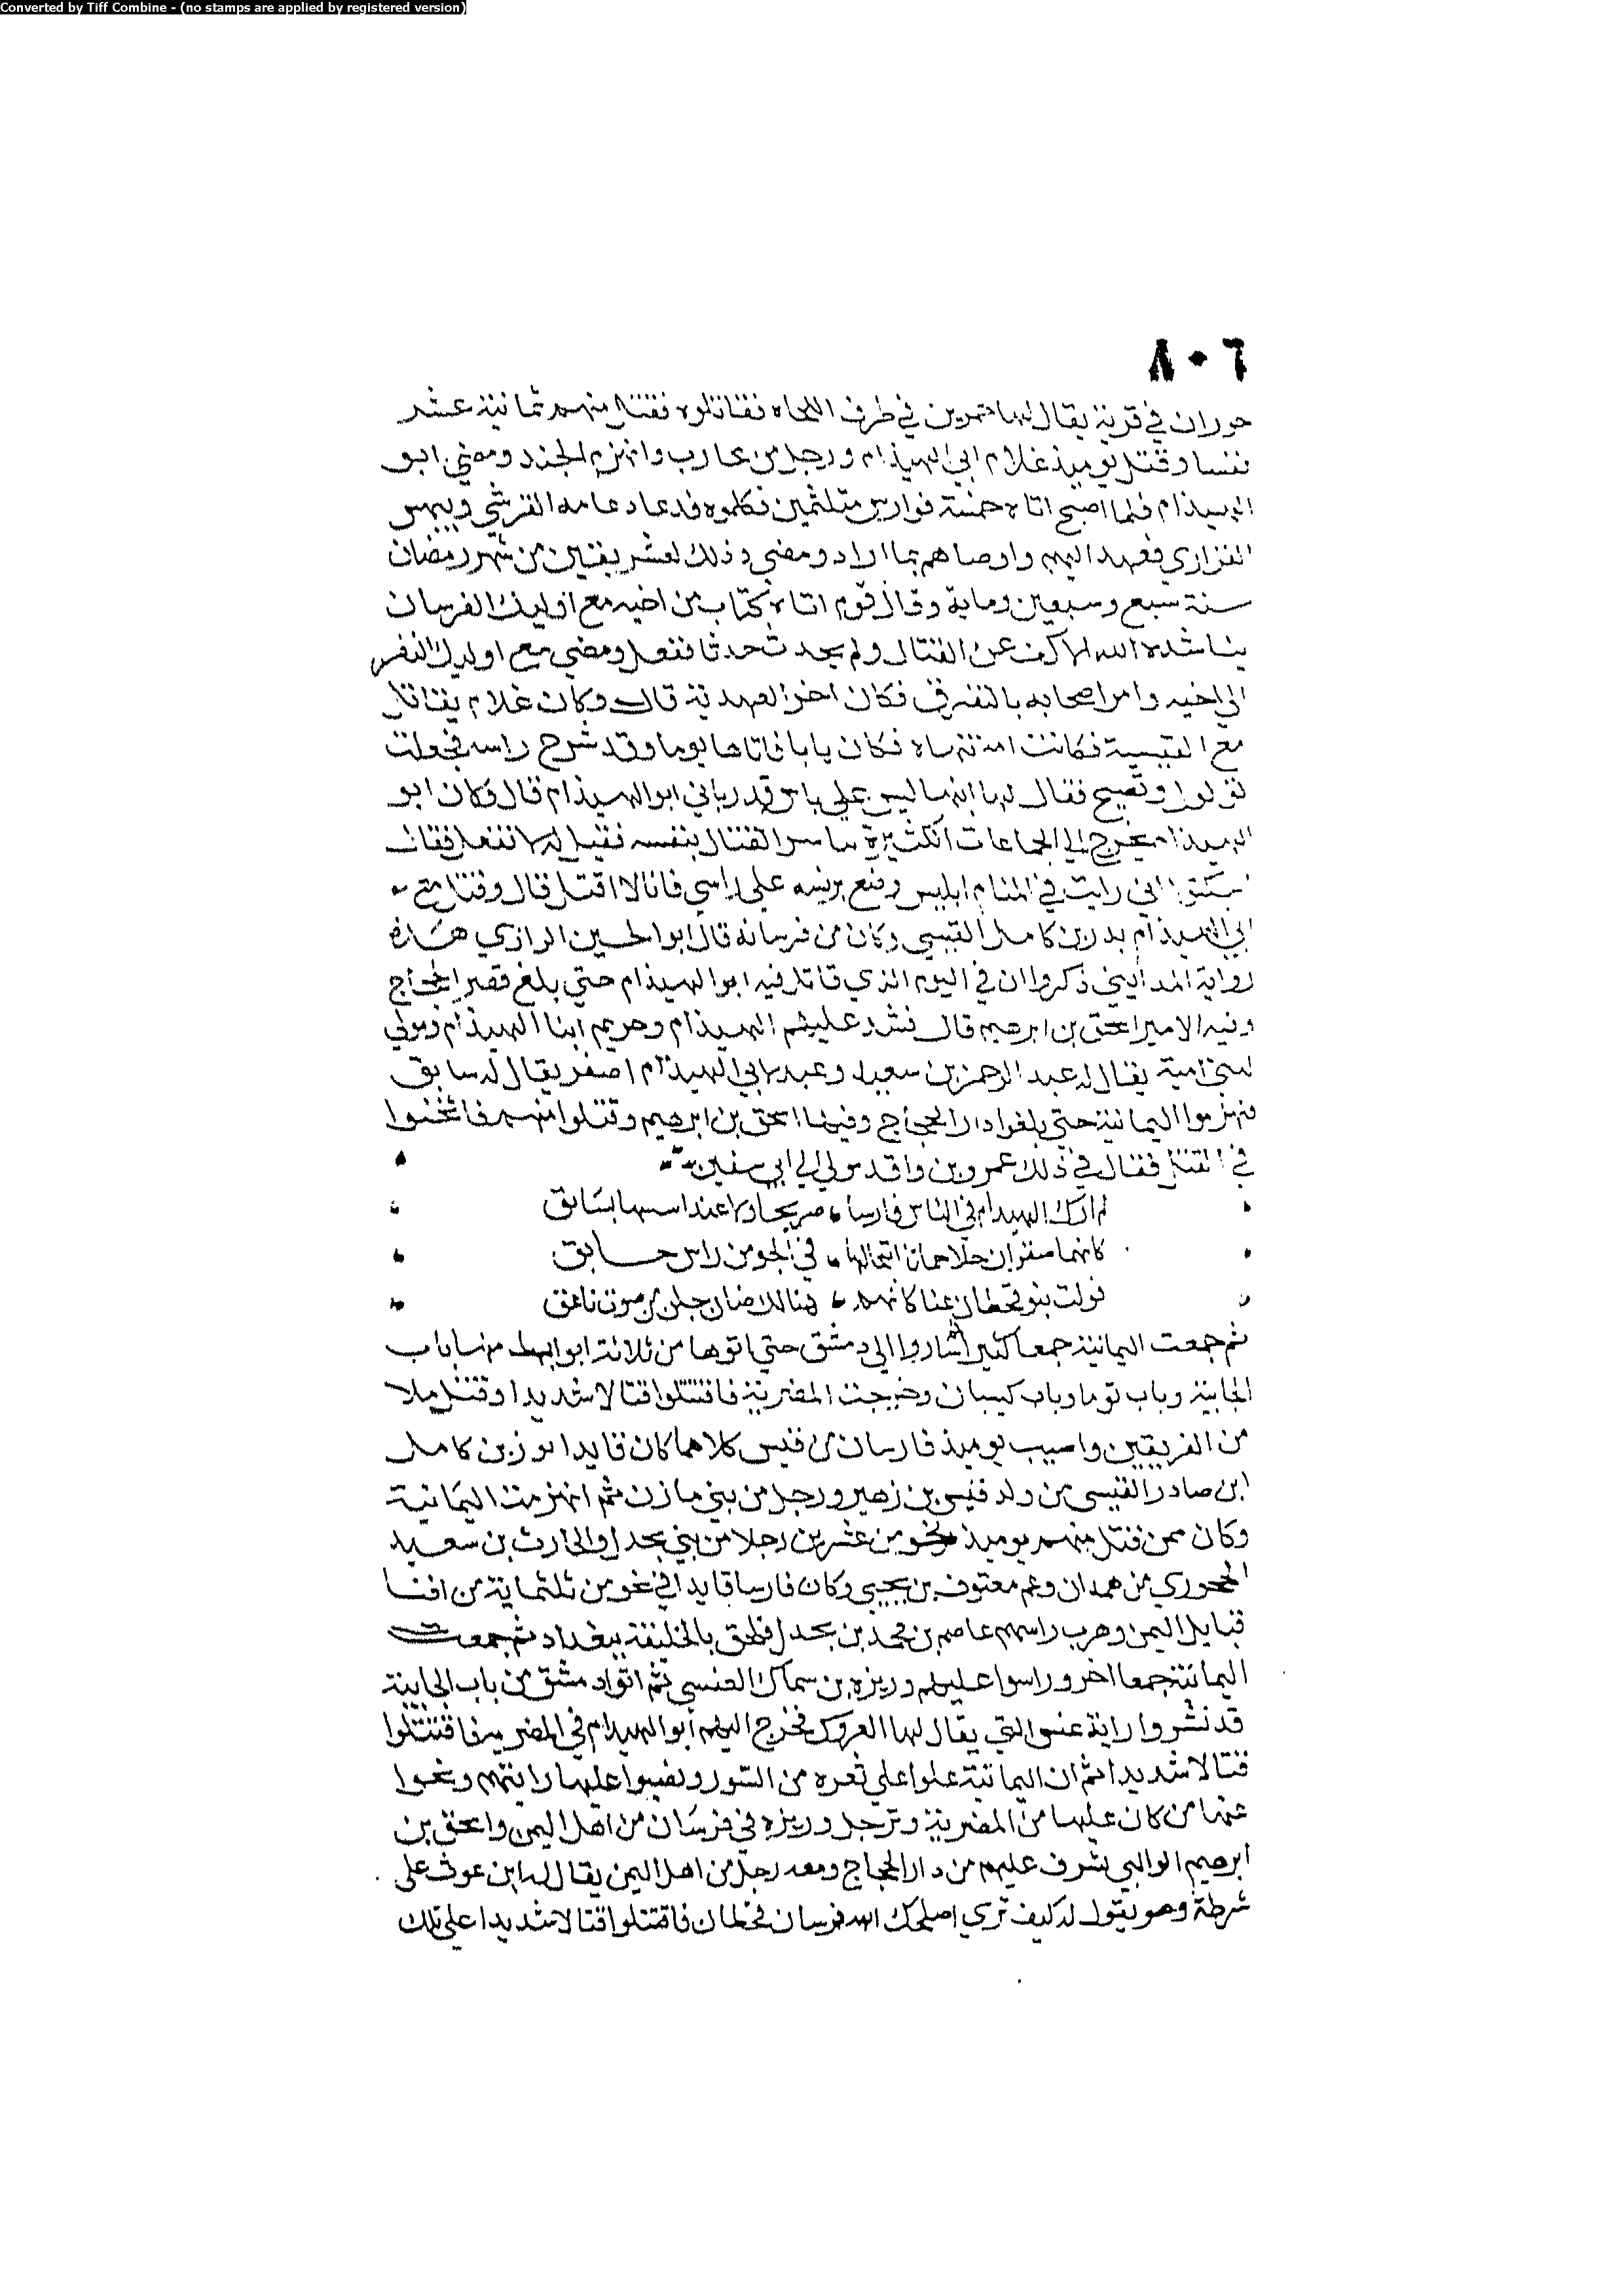 Converted by Tiff Combine - (no stamps are applied by registered version)
٨٠٦
حوران في قرية يقال لها في طرف اللجاه فقاتلوه فقتل منهم ثمانية عشر
نفسا وقتل يوميذ غلام ابي الهيذام ورجل من محارب وانهزم الجند ومضي ابو
الهيذام فلما اصبح اتاه خمسة فوارس متلثمين فكلموه فدعا دعامه القرشي وبيهس
الفزاري فعهد اليهم واوصاهم بما اراد ومضى وذلك لعشر بقين من شهر رمضان
سنة سبع وسبعين وماية وقال قوم اتاه كتاب من اخيه مع اوليك الفرسان
يناشده الله لما كف عن القتال ولم يحدث حدثا ففعل ومضي مع اوليك النفر
الي اخيه وامر اصحابه بالتفرق فكان اخر العهد به قال وكان غلام يقاتل
مع القيسية فكانت امه تنهاه فكان يابا فاتاها يوما وقد شرح راسه فجعلت
تولول وتصيح فقال لها انه ليس علي باس قد رباني ابو الهيذام قال وكان ابو
الهيذام يخرج الي الجماعات الكثيرة القتال بنفسه فقيل له لم تفعل فقال
اني رايت في المنام ابليس وضع برنسه على راسي فانا لا اقتل قال وقتل مع
ابي الهيذام بدر بن كامل القيسي وكان من فرسانه قال ابو الحسين الرازي هذه
رواية المدايني ذكروا ان في اليوم الذي قاتل فيه ابو الهيذام حتي بلغ قصر الحجاج
وفيه الامير اسحق بن ابرهيم قال فشد عليهم الهيذام وخريم ابنا الهيذام ومولي
لبني امية يقال له عبد الرحمن بن سعيد وعبد لابي الهيذام اصفر يقال له سابق
فهزموا اليمانية حتي بلغوا دار الحجاج وفيها اسحق بن ابرهيم وقتلوا منهم فاثخنوا
في القتل فقال في ذلك عمرو بن واقد مولي ال ابي سفين
لم ار كالهيدام في الناس فارسا صريحا ولا عبدا بسابق
كانهما صقران في الجو من راس حابق
فولت بنو قحطان عنا كانهم هنالك ضان جلن من صوت ناعق
ثم جمعت اليمانية جمعا كثيرا الي دمشق حتي اتوها من ثلاثة ابوابها منها باب
الجابية وباب توما وباب كيسان وخرجت المضرية فاقتتلوا قتالا شديدا وقتل ملا
من الفريقين واصيب يوميذ فارسان من قيس كلاهما كان قايدا بن كامل
ابن صادر القيسي من ولد قيس بن زهير ورجل من بني مازن ثم انهزمت اليمانية
وكان ممن قتل منهم يوميذ نحو من عشرين رجلا من بني بحدل والحارث بن سعيد
من همدان وعم معتوف بن يحيي وكان فارسا قايدا في نحو من ثلثماية من افنا
قبايل اليمن وهرب راسهم عاصم بن محمد بن بحدل فلحق بالخليفة ببغداد ثم جمعت
اليمانية جمعا اخر وراسوا عليهم وريزه بن سماك العنسي ثم اتوا دمشق من باب الجابية
قد نشروا راية عنس التي يقال لها فخرج اليهم ابو الهيدام في المضريين فاقتتلوا
قتالا شديدا ثم ان اليمانية علوا علي ثغره من السور ونصبوا عليها رايتهم ونحوا
عنها من كان عليها من المضرية وترجل وريزه في فرسان من اهل اليمن واسحق بن
ابرهيم الوالي يشرف عليهم من دار الحجاج ومعه رجل من اهل اليمن يقال له ابن عوف على
شرطة وهو يقول له كيف تري اصلحك الله فرسان قحطان فاقتتلوا قتالا شديدا علي تلك